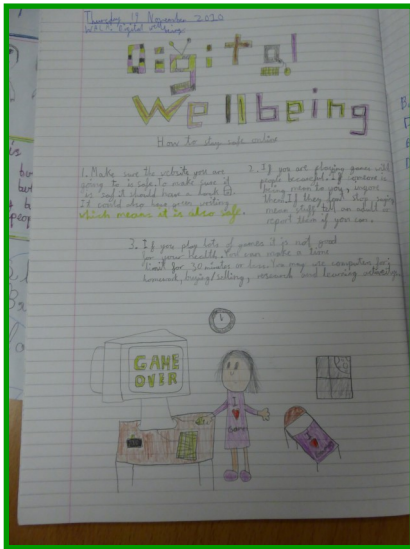 Thursday 19 November 2020
WALT: Digital wellbeing
Digital
Wellbeing
How to stay safe online
1. Make sure the website you are
going to is safe. To make sure it
is safe it should have a lock
it could also have green writing
which means it is also safe.
2. If you are playing games with
people be careful. If someone is
being mean to you, ignore
them. If they keep saying
mean stuff tell an adult or
report them if you can.
3. If you play lots of games it is not good
for your health. You can make a time
limit for 30 minutes or less. You may use computers for
homework, buying/selling, research and learning
GAME
OVER
I